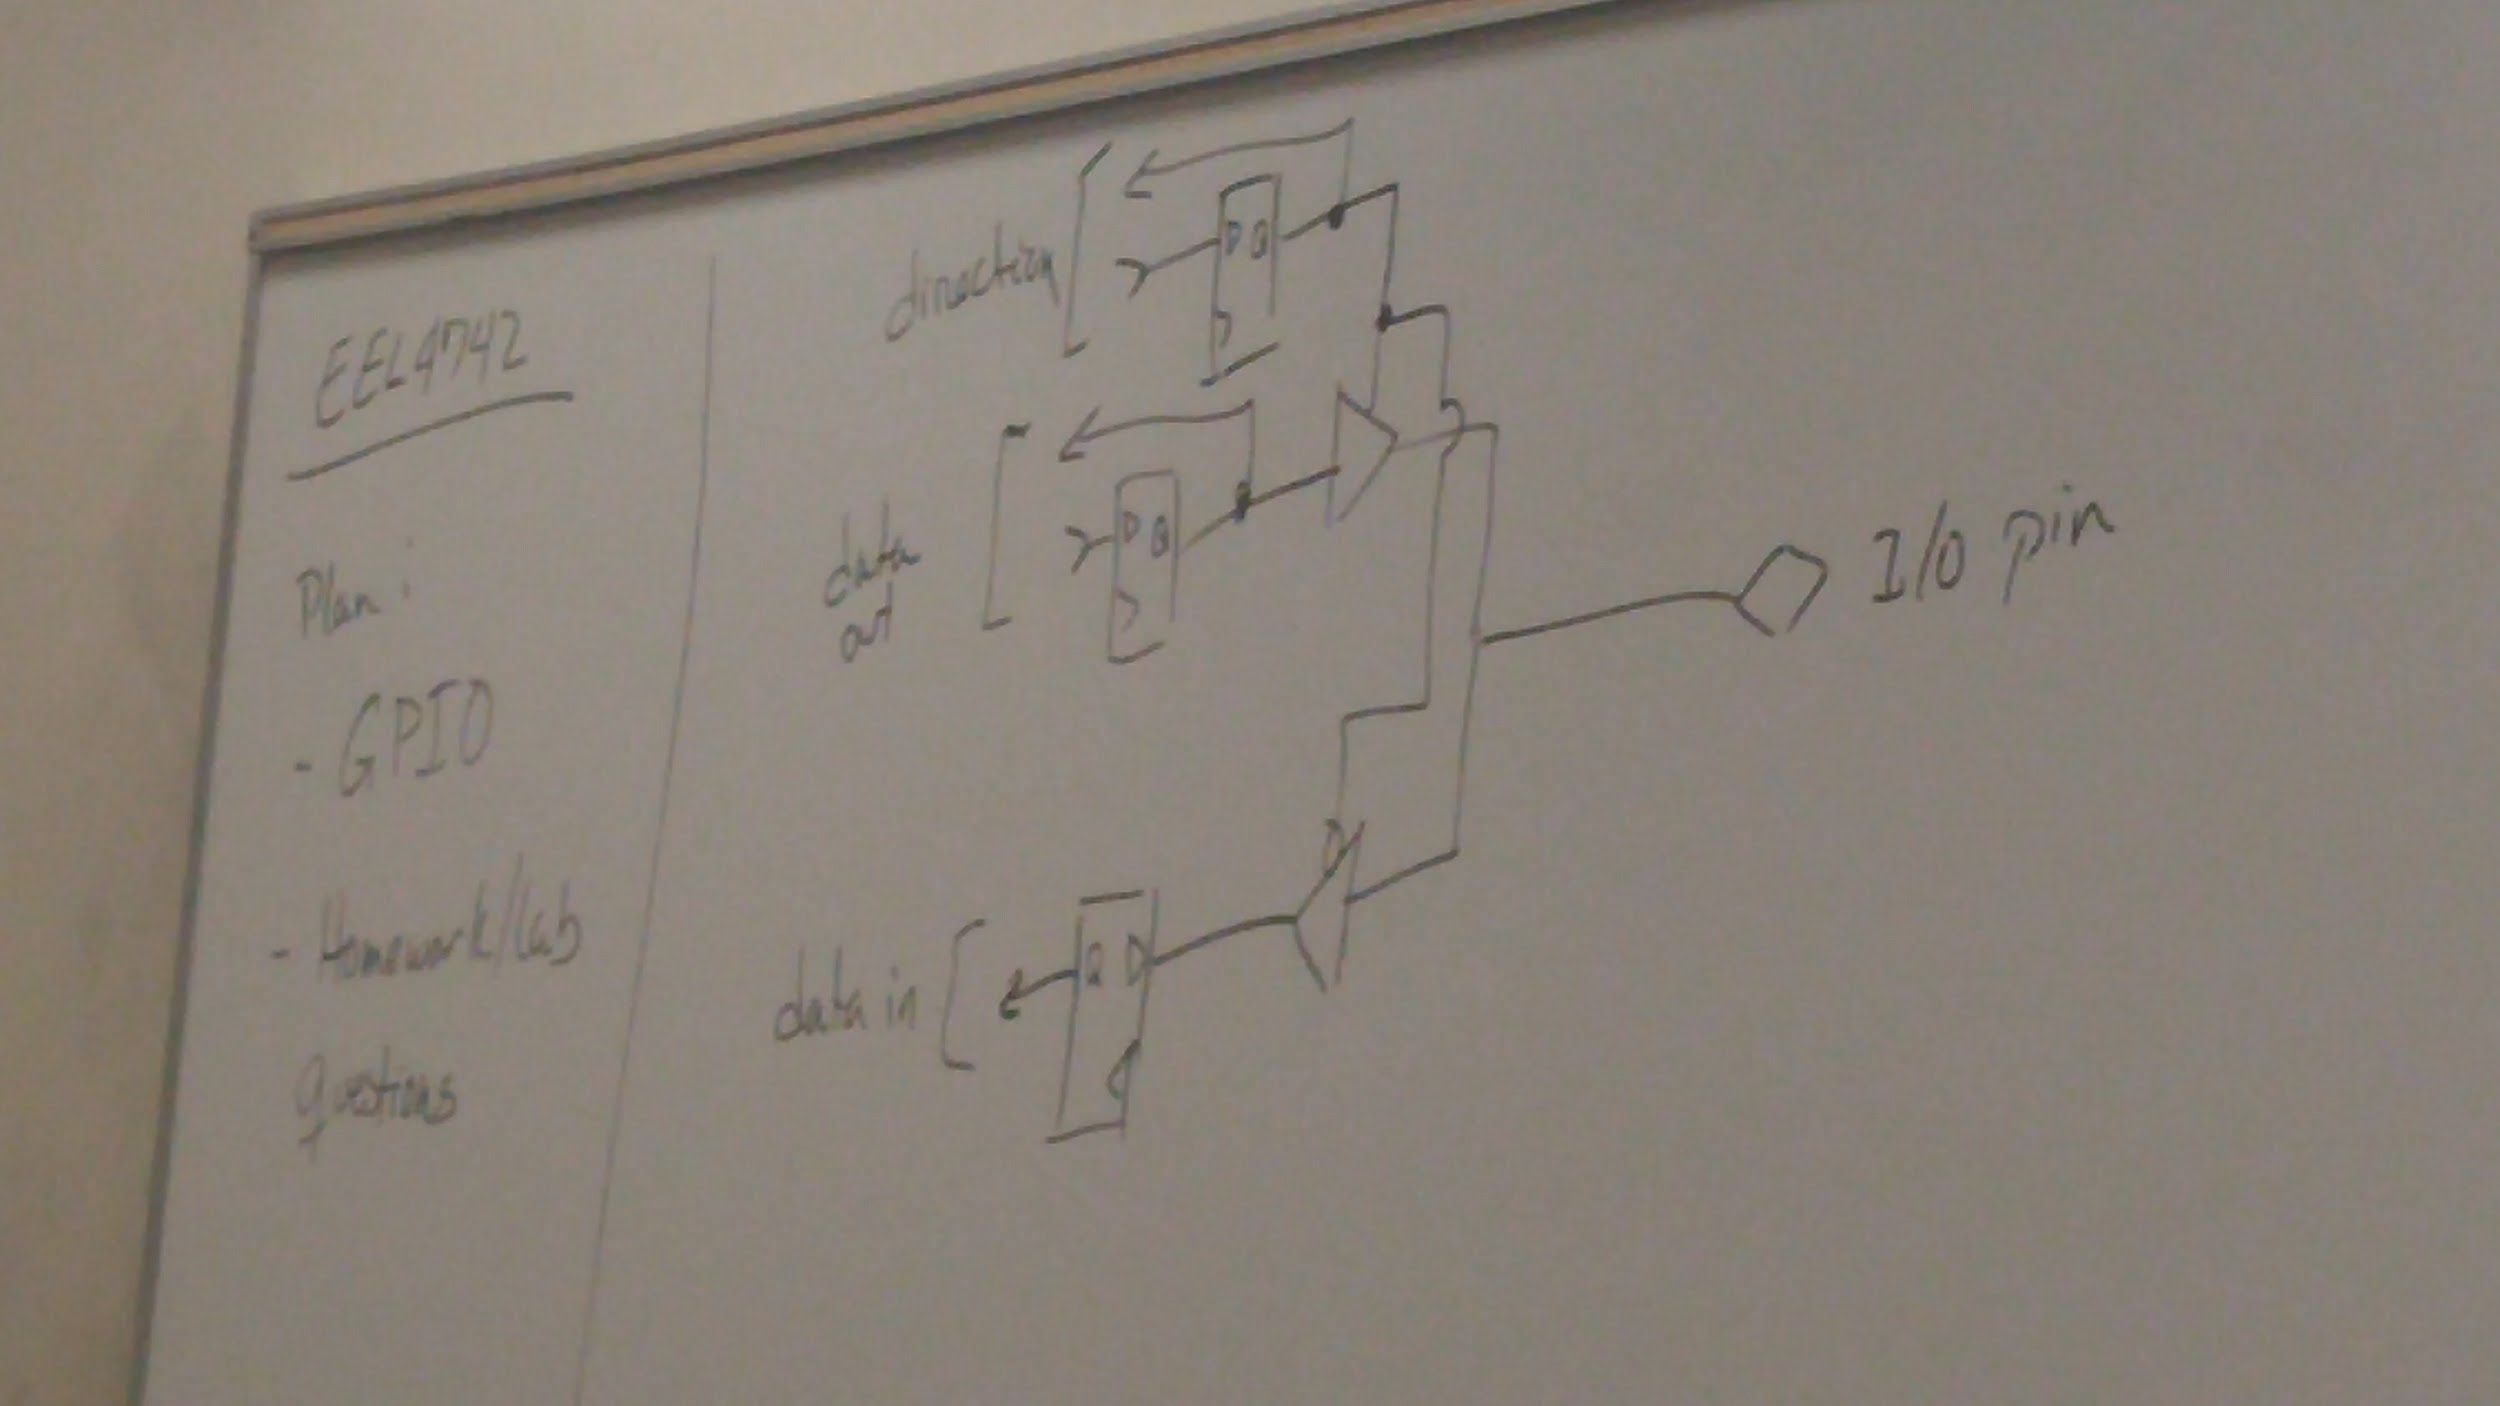 EEL4742
Plan:
- GPIO
- Homework/lab
questions
direction
D Q
data
out
D Q
I/O pin
data in
Q D